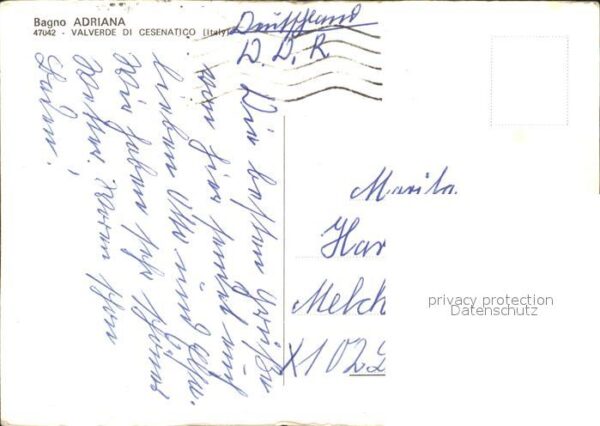 Bagno ADRIANA
47042 - VALVERDE DI CESENATICO (Italy)
Deutschland
D. D. R
Die besten Grüße
von hier sendet euch
lieben Otto und
Wir haben sehr schönes
Wetter. Waren schon
Baden!
Marita
Har
Melch
X1022
privacy protection
Datenschutz